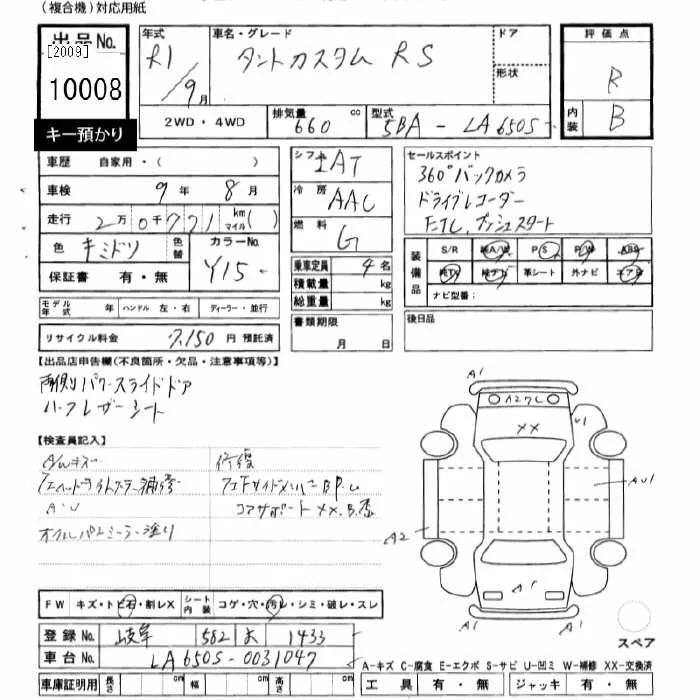 (複合機)対応用紙
出品No.
[2009]
10008
キー預かり
年式
R1/9月
車名・グレード
タントカスタム RS
ドア
形状
2WD・4WD
排気量
660 cc
型式
5BA - LA650S
評価点
R
内装
B
車歴 自家用・( )
車検 9年 8月
走行 2万0千771 km マイル( )
色 キミドリ
色替
カラーNo.
Y15
保証書 有・無
シフト AT
冷房 AAC
燃料 G
乗車定員 4名
積載量 kg
総重量 kg
書類期限
月 日
セールスポイント
360°バックカメラ
ドライブレコーダー
ETC, プッシュスタート
装備品
S/R 純A/W P/S P/W ABS
純TV 純ナビ 革シート 外ナビ エアB
ナビ型番:
後日品
モデル年式 年 ハンドル 左・右 ディーラー・並行
リサイクル料金 7,150 円 預託済
【出品店申告欄(不良箇所・欠品・注意事項等)】
両側パワースライドドア
ハーフレザーシート
【検査員記入】
A/Wキズ
補修
A・U
塗り
修復
コアサポートXX
A1
A2
XX
U1
AU1
A2
A1
A1
FW キズ・トビ石・割レX
シート内装 コゲ・穴・汚レ・シミ・破レ・スレ
登録No. 岐阜 582 1433
車台No. LA650S-0031047
車庫証明用 長さ cm 幅 cm 高さ cm
スペア
A-キズ C-腐食 E-エクボ S-サビ U-凹ミ W-補修 XX-交換済
工具 有・無 ジャッキ 有・無